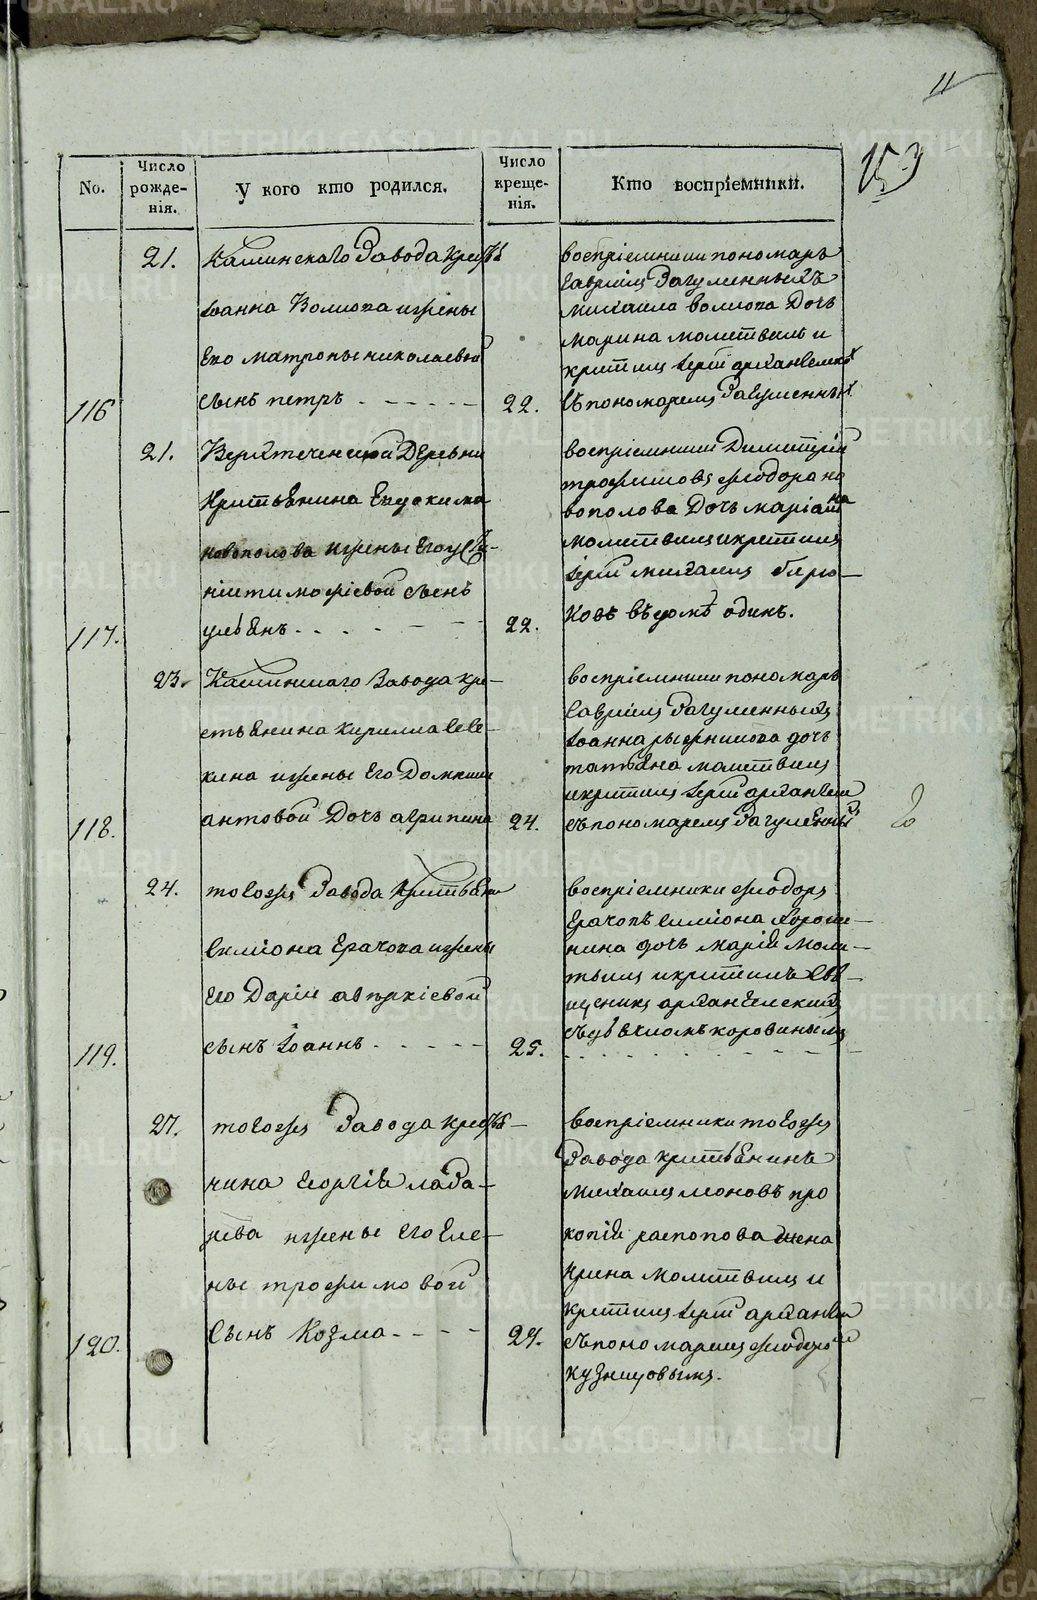 11
153
No.
Число рожде-нія.
У кого кто родился.
Число креще-нія.
Кто воспріемники.
21. Каминскаго Завода крест
Іоанна Волкова и жены
Его матроны николаевой
116 сынъ петръ 22.
воспріемники пономарь
Гавриилъ Загуменныхъ
михаила волкова Дочь
марина молитвилъ и
крестилъ Іерей арханге
съ пономаремъ Загуменны
21. Верхтеченской Деревни
Крестьянина Евдокима
новополова и жены Его
тимофіевой сынъ
117. ульянъ 22.
воспріемники Димитрій
трофимовъ феодора но
вополова Дочь маріанна
молитвилъ и крестилъ
Іерей михаилъ бирю-
ковъ въ домѣ одинъ.
23. Каминскаго Завода кре-
стьянина кирилла
кина и жены Его Домники
118. антовой Дочь агрипина 24.
воспріемники пономарь
Гавриилъ Загуменныхъ
Іоанна дочь
татьяна молитвилъ
и крестилъ Іерей
съ пономаремъ Загуменны
24. тогожъ Завода Крестьяни
Симіона Ерачова и жены
Его Даріи аверкіевой
119. сынъ Іоаннъ 25.
воспріемники феодоръ
Ерачовъ симіона
нина дочь марія моли-
твилъ и крестилъ свя-
щенникъ архангелский
съ дьячкомъ коровинымъ
27. тогожъ Завода крестья-
нина Георгія лада-
нева и жены его Еле-
ны трофимовой
120. Сынъ Козма 27.
воспріемники тогожъ
Завода крестьянинъ
михаилъ леоновъ про
копія распопова жена
Ирина молитвилъ и
крестилъ Іерей
съ пономаремъ феодоро
кузнецовымъ.
METRIKI.GASO-URAL.RU